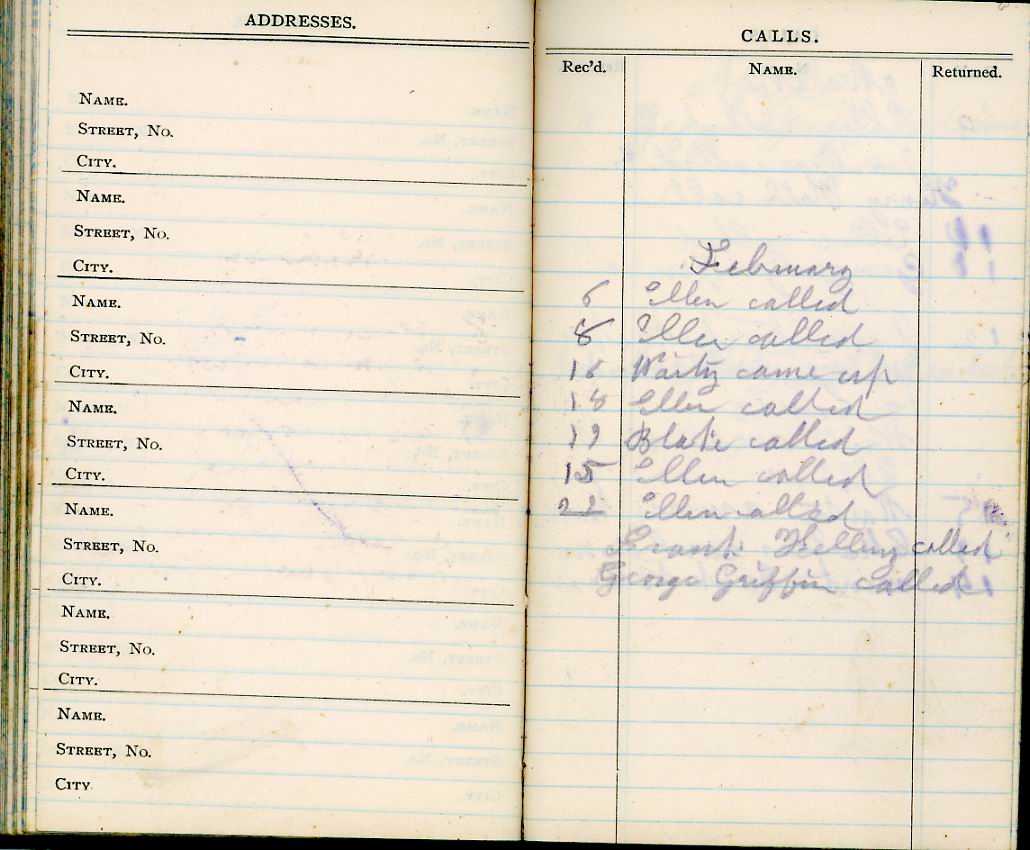 ADDRESSES.
NAME.
STREET, No.
CITY.
NAME.
STREET, No.
CITY.
NAME.
STREET, No.
CITY.
NAME.
STREET, No.
CITY.
NAME.
STREET, No.
CITY.
NAME.
STREET, No.
CITY.
NAME.
STREET, No.
CITY
CALLS.
Rec'd. NAME. Returned.
February
6 Ellen called
8 Ellen called
came up
18 Ellen called
19 called
15 Ellen called
22 Ellen called
Frank called
George Griffin called